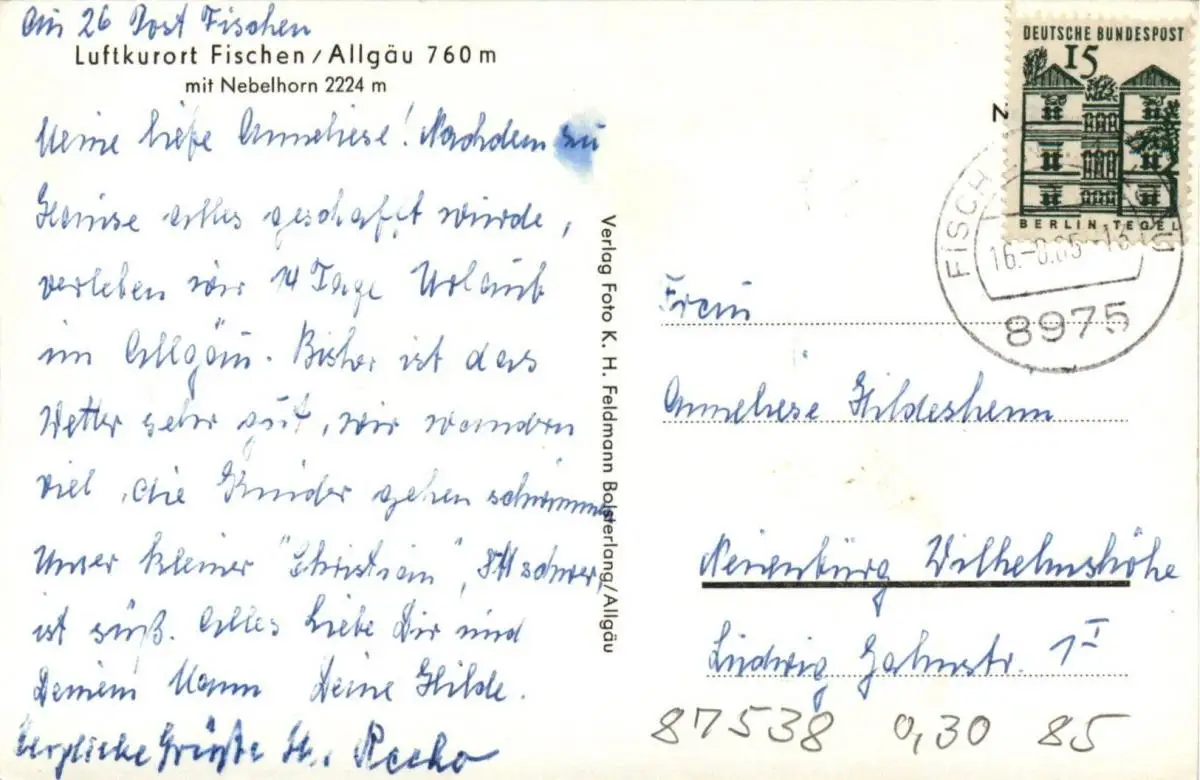 Au 26 Post Fischen
Luftkurort Fischen/Allgäu 760 m
mit Nebelhorn 2224 m
Meine liebe Anneliese! Nachdem zu
Hause alles geschafft wurde,
verleben wir 14 Tage Urlaub
im Allgäu. Bisher ist das
Wetter sehr gut, wir wandern
viel, die Kinder gehen schwimmen
Unser kleiner "Christian", schwer,
ist süß. Alles Liebe Dir und
Deinem Mann Deine Hilde.
Herzliche Grüße
Verlag Foto K. H. Feldmann Bolsterlang/Allgäu
DEUTSCHE BUNDESPOST
15
BERLIN-TEGEL
Z
FISCH
8975
Frau
Anneliese Hildesheim
Neuenbürg Wilhelmshöhe
Ludwig 1 I
87538 0,30 85